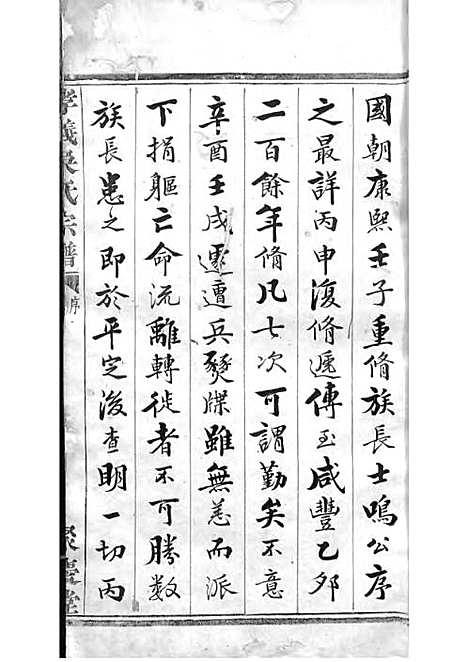 國朝康熙壬子重脩族長士鳴公序
之最詳丙申復脩遞傳至咸豐乙夘
二百餘年脩凡七次可謂勤矣不意
辛酉壬戌遷遭兵燹牒雖無恙而派
下捐軀亡命流離轉徙者不可勝数
族長患之即於平定後查明一切丙
孝義吳氏宗譜
序
聚慶堂